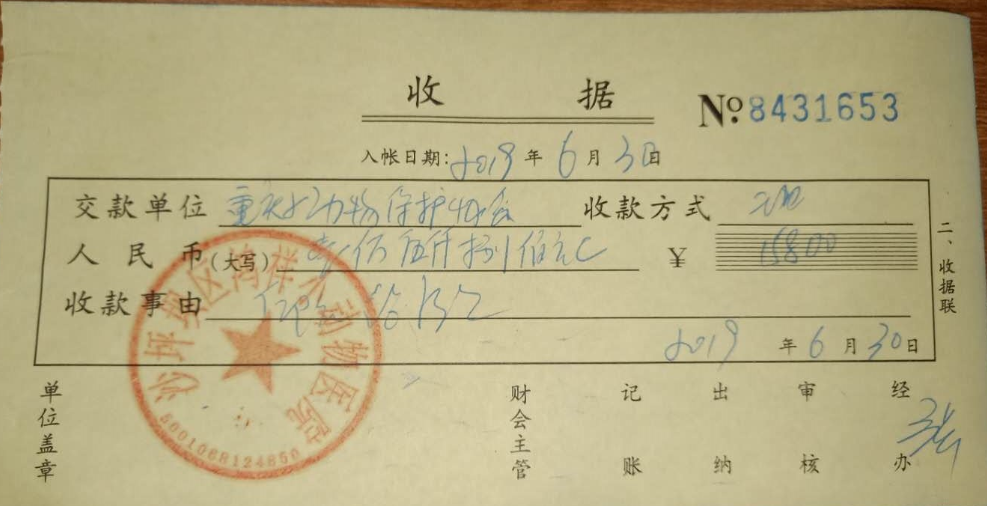 收 据
No 8431653
入帐日期: 2019 年 6 月 30日
交款单位 重庆小动物保护协会 收款方式
人民币(大写) 壹万伍仟捌佰元 ¥ 15800
收款事由
2019 年 6 月 30日
二、收据联
沙坪坝区鸿祥小动物医院
5001068124850
单位盖章 财会主管 记账 出纳 审核 经办